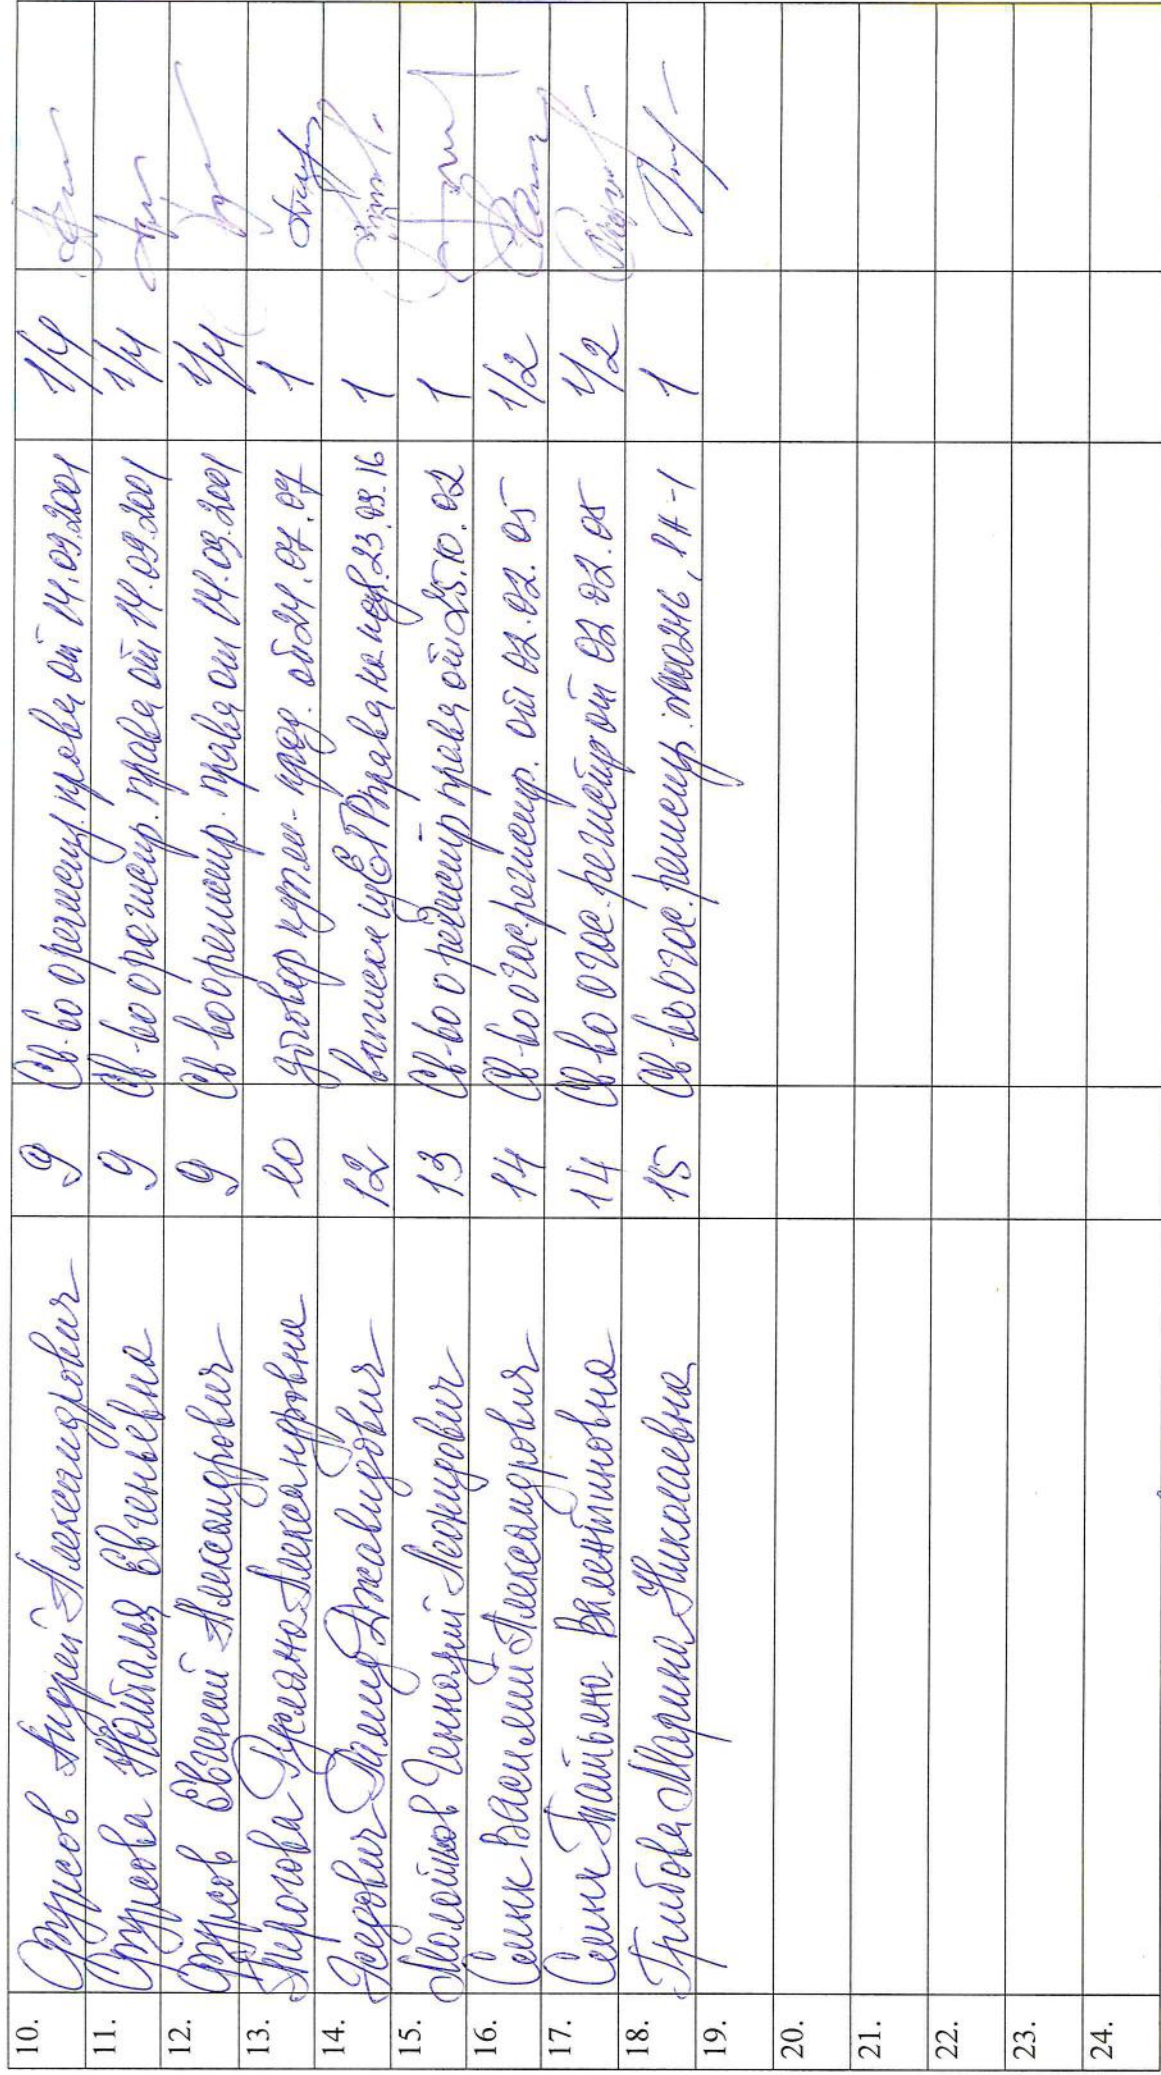 10. Фурсов Андрей Александрович 9 Св-во о регистр. права от 14.09.2001 1/4
11. Фурсова Наталья Евгеньевна 9 Св-во о регистр. права от 14.09.2001 1/4
12. Фурсов Евгений Александрович 9 Св-во о регистр. права от 14.09.2001 1/4
13. Руслана Александровна 10 договор купли-прод. от 24.07.07 1
14. Джавидович 12 выписка из ЕГРП права на нед. 23.09.16 1
15. Геннадий Леонидович 13 Св-во о регистр права от 25.10.02 1
16. Семик Василий Александрович 14 Св-во о гос. регистр. от 02.02.05 1/2
17. Семик Татьяна Валентиновна 14 Св-во о гос. регистр от 02.02.05 1/2
18. Грибова Марина Николаевна 15 Св-во о гос. регистр. 1
19.
20.
21.
22.
23.
24.